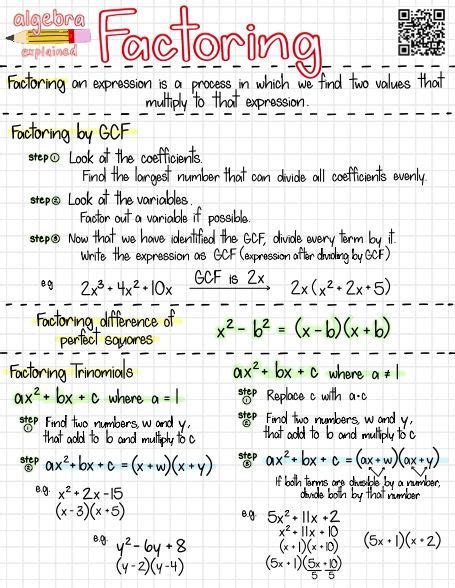 algebra
explained
Factoring
Factoring an expression is a process in which we find two values that
multiply to that expression.
Factoring by GCF
step ① Look at the coefficients.
Find the largest number that can divide all coefficients evenly.
step ② Look at the variables.
Factor out a variable if possible.
step ③ Now that we have identified the GCF, divide every term by it.
Write the expression as GCF (expression after dividing by GCF)
e.g. 2x³ + 4x² + 10x GCF is 2x 2x(x² + 2x + 5)
Factoring difference of
perfect squares
x² - b² = (x - b)(x + b)
Factoring Trinomials
ax² + bx + c where a = 1
step ① Find two numbers, w and y,
that add to b and multiply to c
step ② ax² + bx + c = (x + w)(x + y)
e.g. x² + 2x - 15
(x - 3)(x + 5)
e.g. y² - 6y + 8
(y - 2)(y - 4)
ax² + bx + c where a ≠ 1
step ① Replace c with a·c
step ② Find two numbers, w and y,
that add to b and multiply to c
step ③ ax² + bx + c = (ax + w)(ax + y)
If both terms are divisible by a number,
divide both by that number
e.g. 5x² + 11x + 2
x² + 11x + 10
(x + 1)(x + 10)
(5x + 1)(5x + 10)
5 5
(5x + 1)(x + 2)